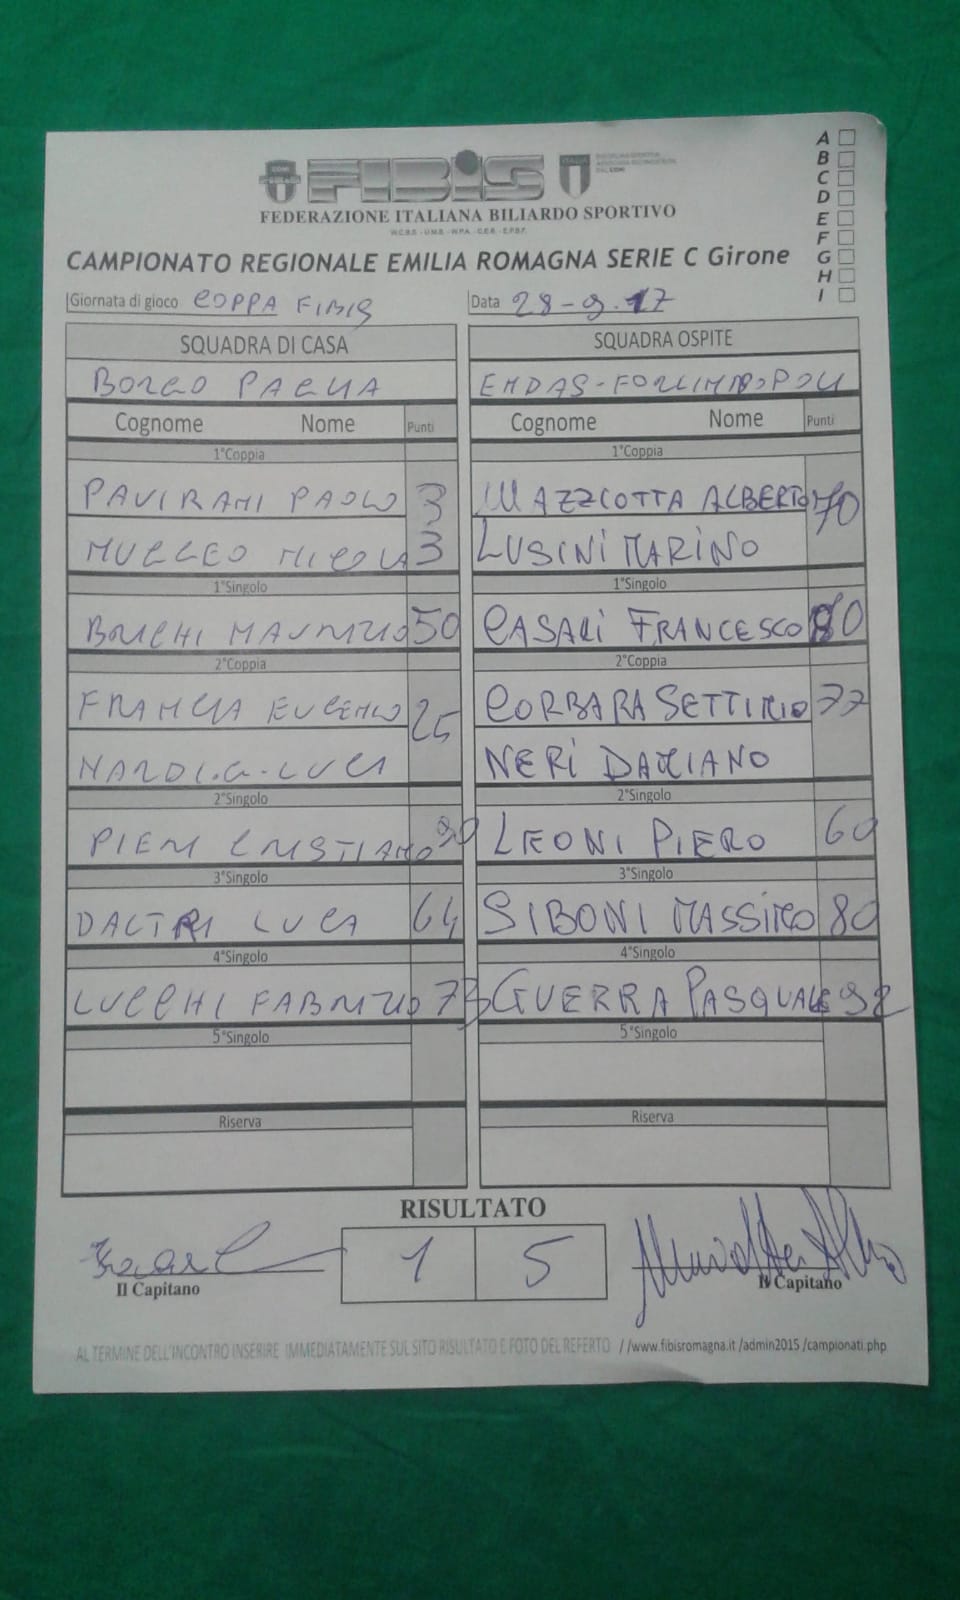 FIBIS
FEDERAZIONE ITALIANA BILIARDO SPORTIVO
W.C.B.S. - U.M.B. - W.P.A. - C.E.B. - E.P.B.F.
A
B
C
D
E
F
G
H
I
CAMPIONATO REGIONALE EMILIA ROMAGNA SERIE C Girone
Giornata di gioco COPPA FIBIS Data 28-9-17
SQUADRA DI CASA SQUADRA OSPITE
BORGO PAGLIA ENDAS-FORLIMPOPOLI
Cognome Nome Punti Cognome Nome Punti
1°Coppia 1°Coppia
PAVIRANI PAOLO 33 MAZZCOTTA ALBERTO 70
NUCCEO NICOLA LUSINI MARINO
1°Singolo 1°Singolo
MAURIZIO 50 CASARI FRANCESCO 80
2°Coppia 2°Coppia
FRANCIA EUGENIO 25 CORBARA SETTIMIO 77
NARDI.G-LUCA NERI DAMIANO
2°Singolo 2°Singolo
PIERI CRISTIANO 90 LEONI PIERO 60
3°Singolo 3°Singolo
DALTRI LUCA 64 SIBONI MASSIMO 80
4°Singolo 4°Singolo
LUCCHI FABRIZIO 73 GUERRA PASQUALE 92
5°Singolo 5°Singolo
Riserva Riserva
RISULTATO
1 5
Il Capitano Il Capitano
AL TERMINE DELL'INCONTRO INSERIRE IMMEDIATAMENTE SUL SITO RISULTATO E FOTO DEL REFERTO //www.fibisromagna.it /admin2015 /campionati.php